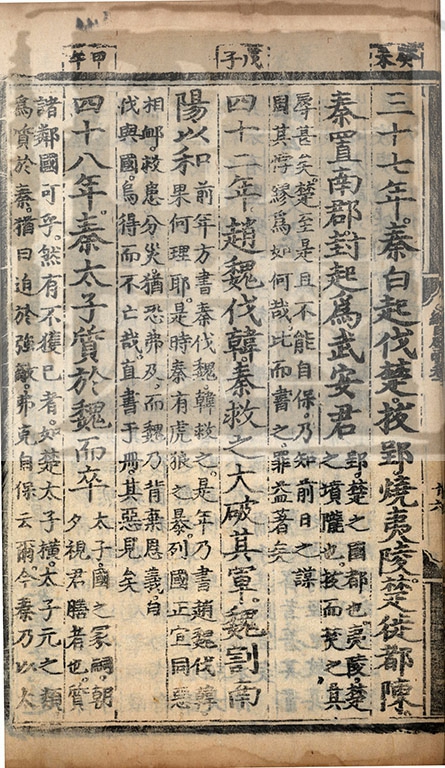 癸未
三十七年。秦白起伐楚。拔郢燒夷陵。楚徙都陳
秦置南郡封起爲武安君
郢楚之國都也。夷陵。楚
之墳隴也。拔而焚之。其
辱甚矣。楚至是且不能自保乃知前日之謀
因其悖繆爲如何哉。比而書之。罪益著矣
戊子
四十二年。趙魏伐韓。秦救之大破其軍。魏割南
陽以和
前年方書秦伐魏韓救之。是年乃書趙魏伐韓
果何理耶。是時秦有虎狼之暴。列國正宜同惡
相卹。救患分災猶恐弗及。而魏乃背棄恩義。自
伐與國。烏得而不亡哉。直書于冊。其惡見矣
甲午
四十八年。秦太子質於魏而卒
太子。國之冢嗣。朝
夕視君膳者也。質
諸鄰國可乎。然有不獲已者。如楚太子橫。太子元之類
爲質於秦猶曰迫於強敵。弗克自保云爾。今秦乃以太